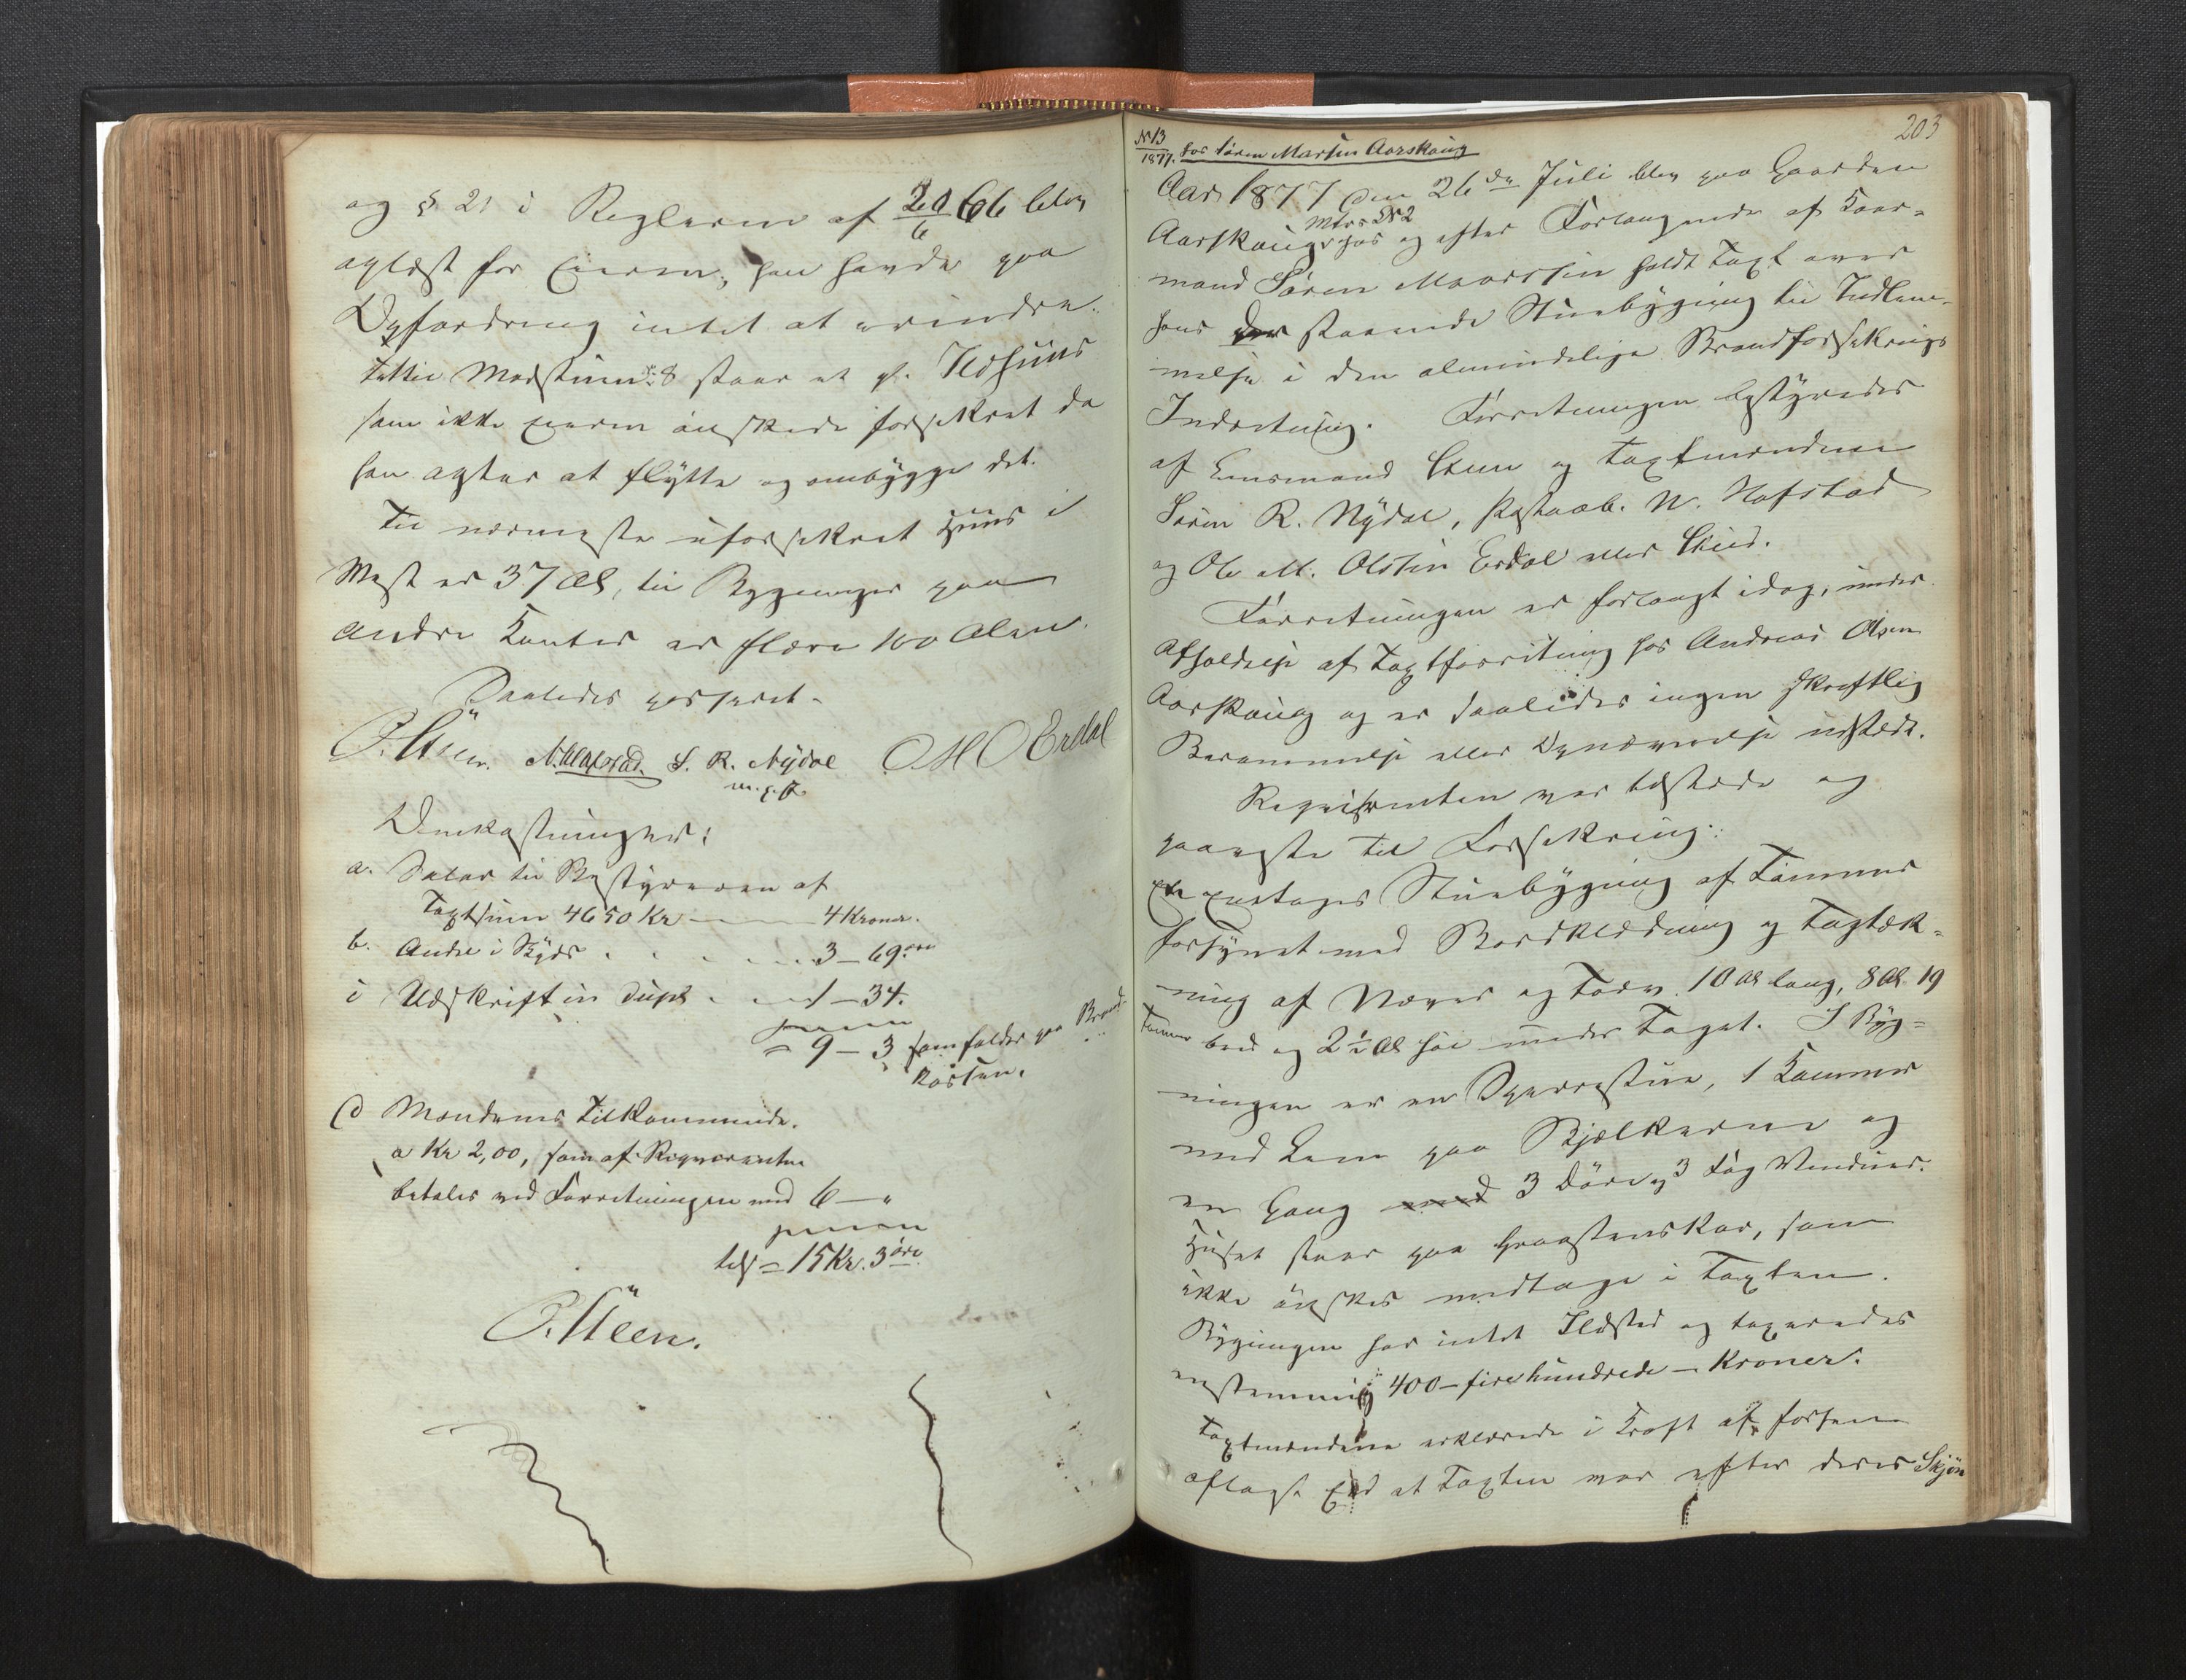 og § 21 i Reglerne af 20/6 66 blev
oplæst for Eieren; han havde paa
Opfordring intet at erindre.
Tættie No 8 staar et gl. Ildhuus
som ikke Eieren ønskede forsikret da
han agter at flytte og ombygge det.
Til nærmeste uforsikret Huus i
Vest er 37 Al, til Bygninger paa
andre Kanter er flere 100 Alen.
Saaledes passeret.
P. Steen. N. Hofstad. S. R. Nydal O M O Erdal
m. p. P.
Omkostninger:
a. Salar til Bestyreren af
Taxtsum 4650 Kr — 4 Kroner.
b. Andel i Skyds . . . . . 3 — 69 øre
i Udskrift in dupl . . 1 — 34.
= 9 — 3 som falder paa Brand
kassen.
d Mændenes Tilkommende.
a Kr 2,00, som af Reqvirenten
betales ved Forretningen med 6 — "
tils = 15 Kr. 3 øre.
P. Steen.
203
No 13
1877. hos Søren Martin Aarskoug
Aar 1877 den 26de Juli blev paa Gaarden
Mtr No 2
Aarskoug hos og efter Forlangende af Kaar-
mand Søren holdt Taxt over
hans staaende Stuebygning til Indlem-
melse i den almindelige Brandforsikrings
Indretning. Forretningen bestyredes
af Lensmand Steen og Taxtmændene
Søren R. Nydal, Postaab. N. Hofstad
og Ole M. Olsen Erdal alle Eeds.
Forretningen er forlangt idag, under
Afholdelse af Taxtforretning hos Andreas Olsen
Aarskoug og er saaledes ingen skriftlig
Berammelse eller Opnævnelse udstedt.
Reqvirenten var tilstede og
paaviste til Forsikring:
En Eenetages Stuebygning af Tømmer
forsynet med Bordklædning og Tagtæk-
ning af Næver og Torv 10 Al lang, 8 Al 19
Tommer bred og 2 1/2 Al høi under Taget. I Byg-
ningen er en Sperrestue, 1 Kammer
med Lem paa Bjelkerne og
en Gang med 3 Døre og 3 Fag Vinduer.
Huset staar paa Graastenskar, som
ikke ønskes medtaget i Taxten.
Bygningen har intet Ildsted og taxeredes
enstemmig 400 — firehundrede — Kroner.
Taxtmændene erklærede i Kraft af forhen
aflagt Eed at Taxten var efter deres Skjøn